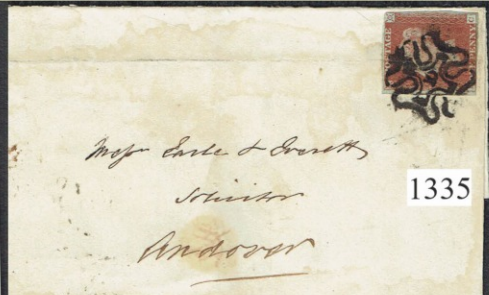 POSTAGE
Messrs Earle & Everett
Solicitor
Andover
1335